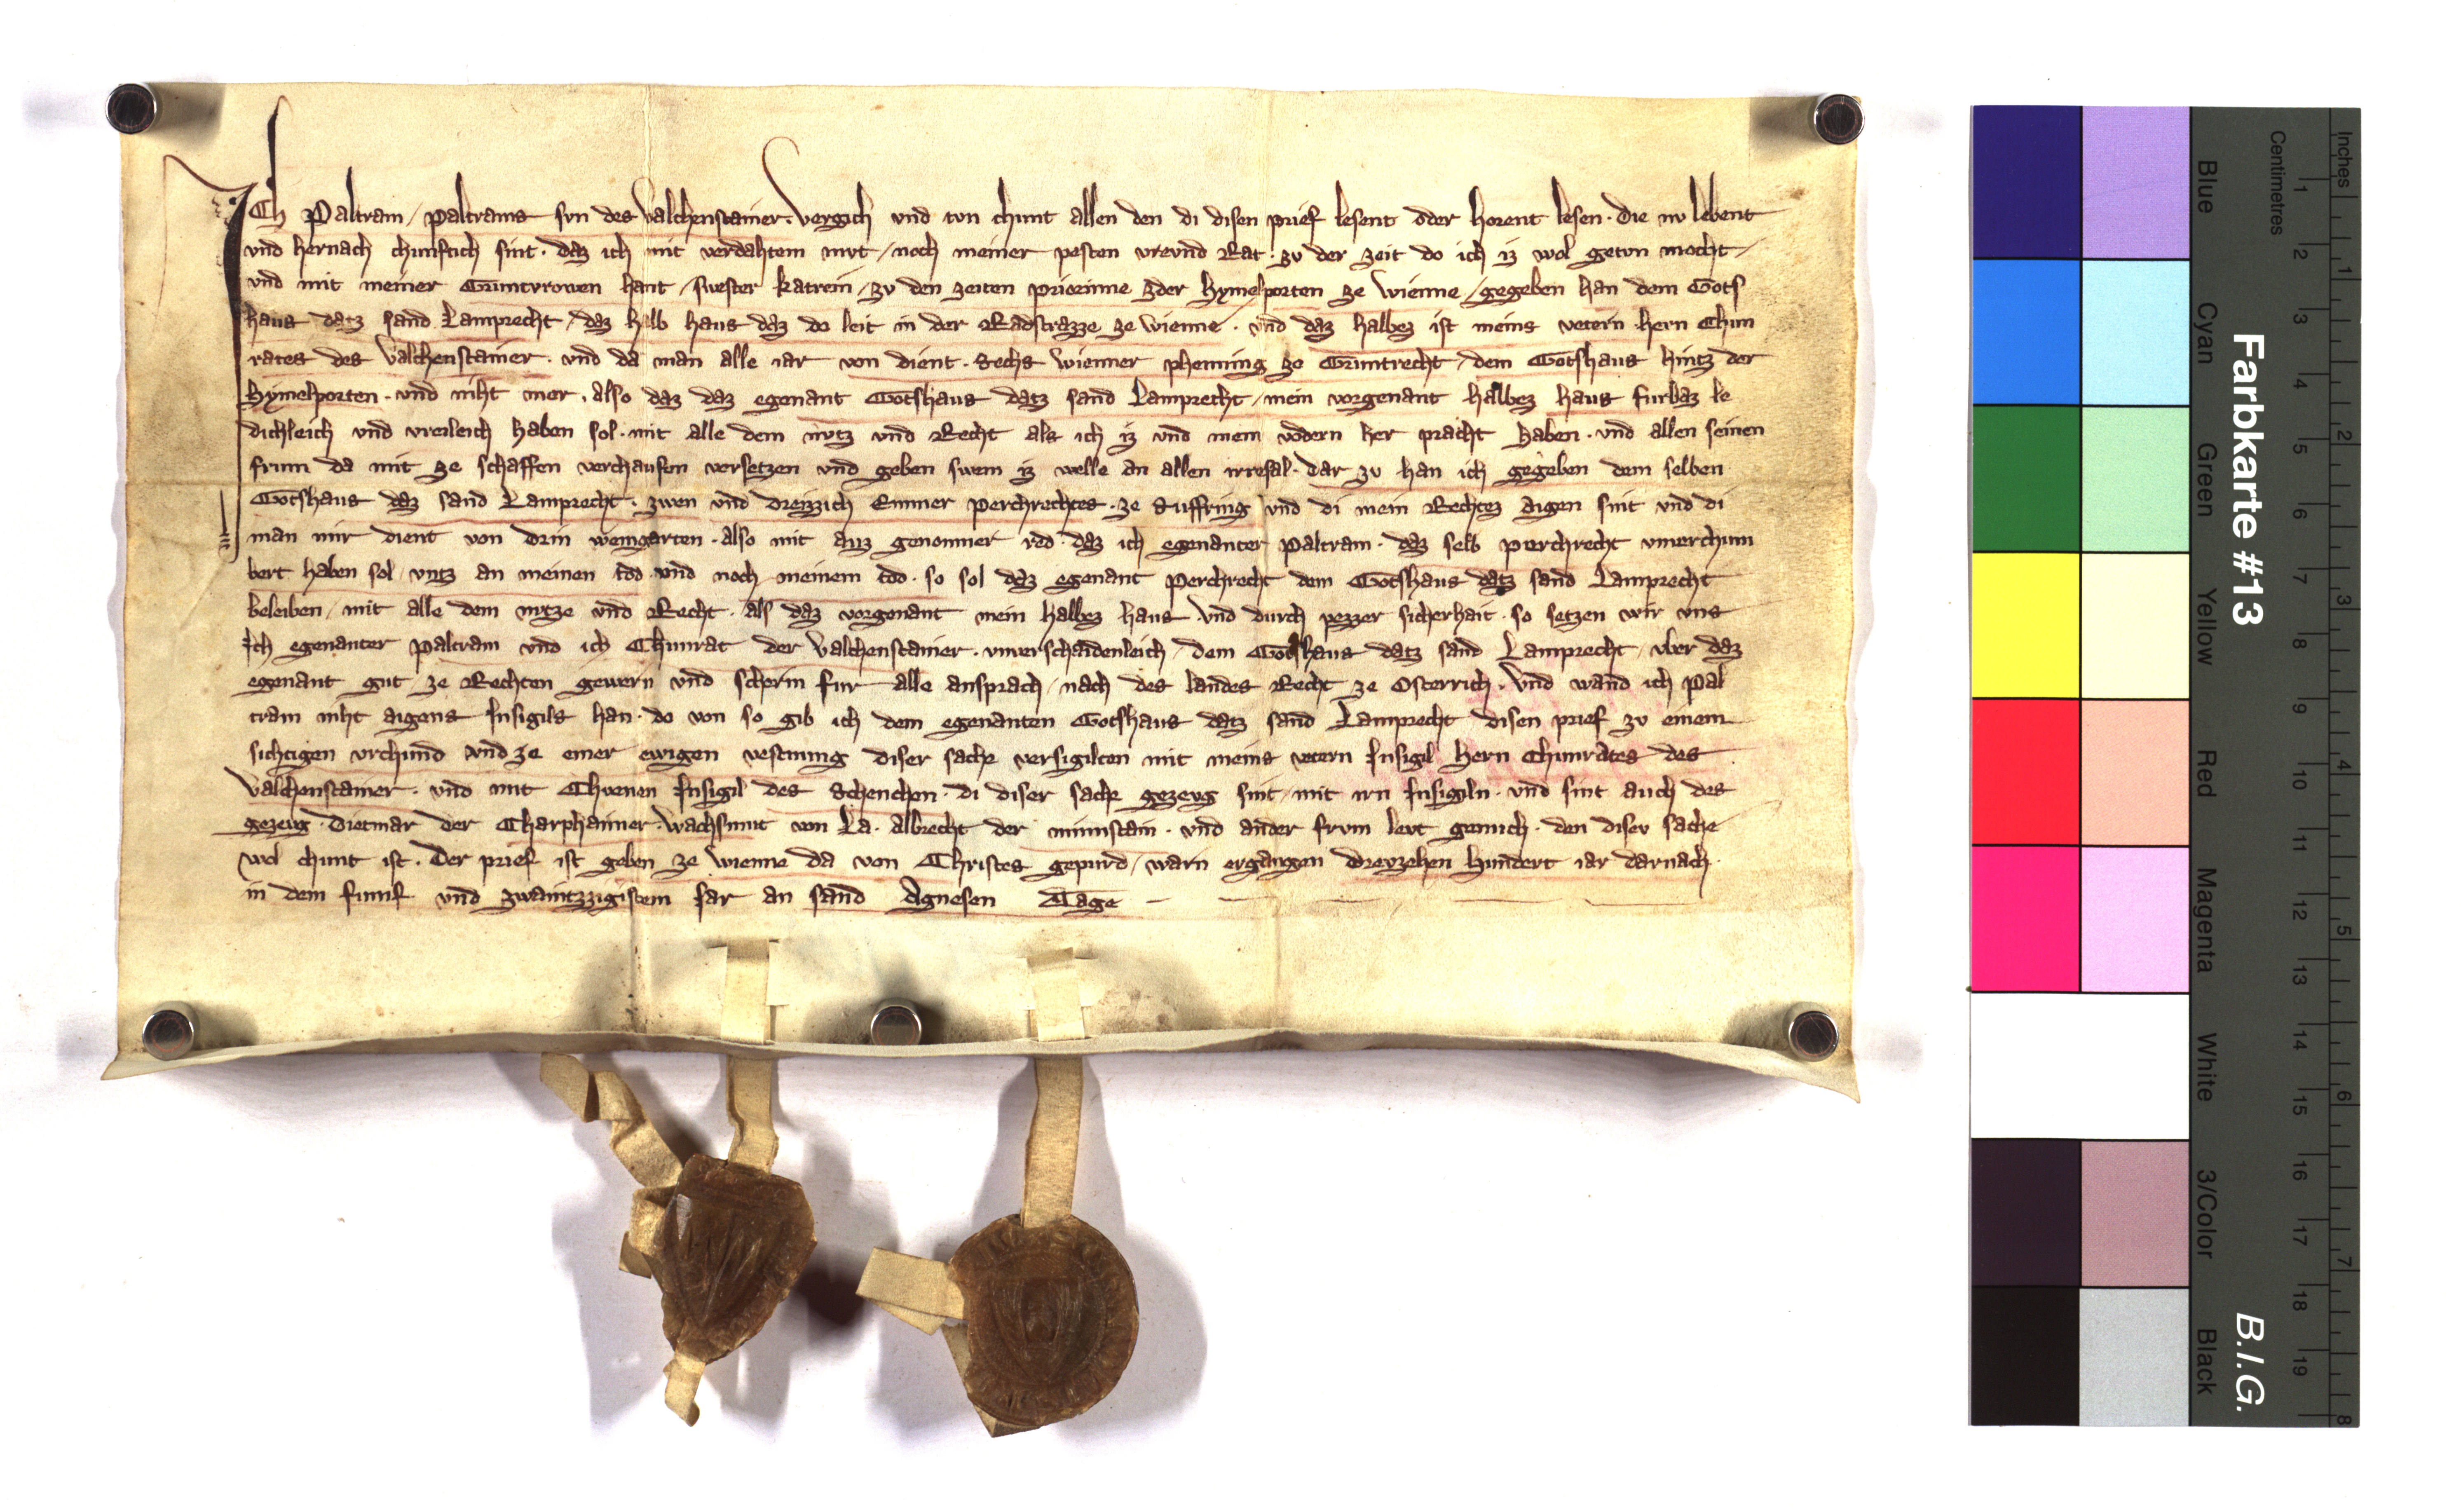 ICh Paltram / paltrams svn des Valchenstainer . Vergich vnd tvn chunt allen den di disen prief lesent oder horent lesen . die nv lebent
vnd hernach chunftich sint . daz ich mit verdahtem mvt / noch meiner pesten vrevnd Rat . zv der zeit do ich iz wol getvn mocht /
vnd mit meiner Gruntvrowen hant / swester katrein / zv den zeiten priorinne zder hymelporten ze wienne / gegeben han dem Gots
haus datz sand Lamprecht / daz halb haus daz do leit in der Radstrazze ze wienne . vnd daz halbez ist meins vetern hern Chun
rates des Valchenstainer . vnd da man alle iar von dient . sechs wienner phenning ze Gruntrecht / dem Gotshaus hintz der
hymelporten . vnd niht mer . also daz daz egenant Gotshaus datz sand Lamprecht / mein vorgenant halbez haus furbaz le
dichleich vnd vreileich haben sol . mit alle dem nvtz vnd Recht als ich iz vnd mein vodern her pracht haben . vnd allen seinen
frum da mit ze schaffen verchaufen versetzen vnd geben swem iz welle an allen irresal . dar zv han ich gegeben dem selben
Gotshaus daz sand Lamprecht . zwen vnd dreizzich Emmer perchrechtes . ze Suffring vnd di mein Rechtez aigen sint vnd di
man mir dient von drin weingarten . also mit auz genomner red . daz ich egenanter paltram . daz selb perchrecht vnverchum
bert haben sol / vntz an meinen tod . vnd noch meinem tod . so sol daz egenant perchrecht dem Gotshaus datz sand Lamprecht
beleiben / mit alle dem nvtze vnd Recht . als daz vorgenant mein halbez haus . vnd durch pezzer sicherhait . so setzen wir vns
Ich egenanter paltram vnd ich Chunrat der Valchenstainer . vnverschaidenleich / dem Gotshaus datz sand Lamprecht / vber daz
egenant gut / ze Rechten gewern vnd scherm fur alle ansprach / nach des landes Recht ze Osterrich . vnd wand ich pal
tram niht aigens Insigils han . do von so gib ich dem egenanten Gotshaus datz sand Lamprecht disen prief zv einem
sichtigen vrchund vnd ze einer ewigen vestnung diser sache versigilten mit meins vetern Insigil hern Chunrates des
Valchenstainer . vnd mit Chvenen Insigil des Schenchen . di diser sache gezevg sint / mit irn Insigiln . vnd sint auch des
gezevg . dietmar der Charphainer . wachsmut von La . albrecht der minnstain . vnd ander frvm levt genuch . den disev sache
wol chunt ist . Der prief ist geben ze wienne da von Christes gepurd / warn ergangen drevzehen hundert iar darnach .
in dem fumf vnd zwaintzzigistem Iar an sand Agnesen Tage
Farbkarte #13
B.I.G.
Inches
Centimetres
1 2 3 4 5 6 7 8
1 2 3 4 5 6 7 8 9 10 11 12 13 14 15 16 17 18 19
Blue
Cyan
Green
Yellow
Red
Magenta
White
3/Color
Black